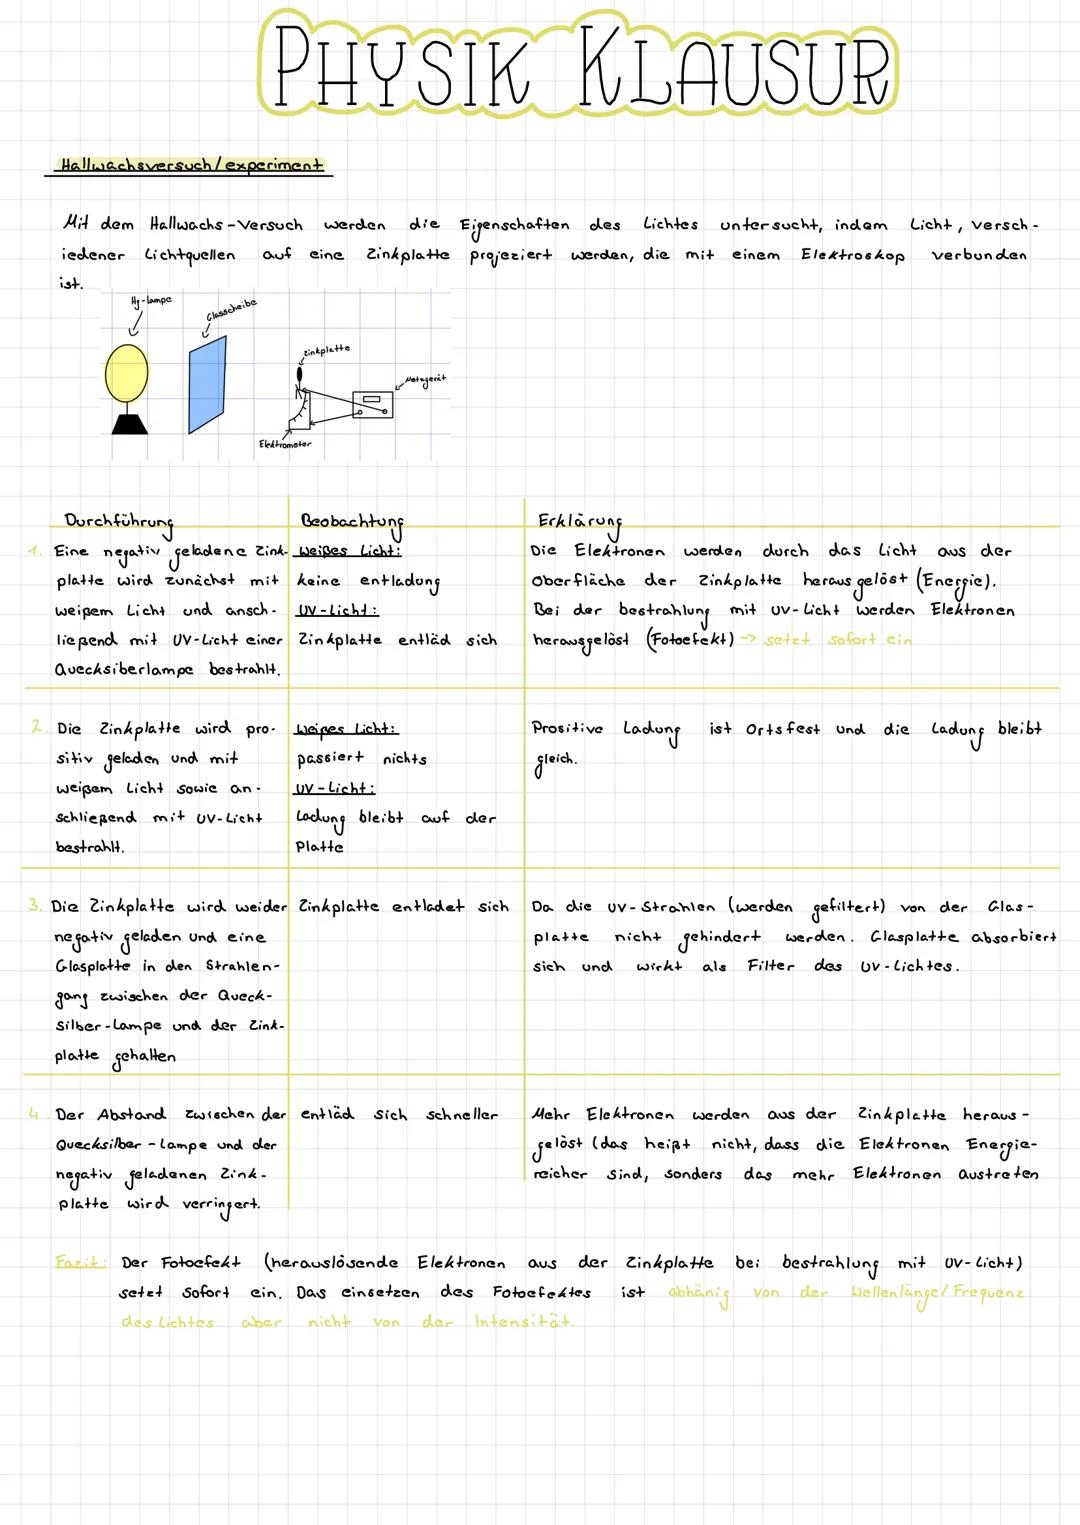 PHYSIK KLAUSUR
Hallwachsversuch/experiment
Mit dem Hallwachs-Versuch werden die Eigenschaften des Lichtes untersucht, indem Licht, versch-
iedener Lichtquellen auf eine Zinkplatte projeziert werden, die mit einem Elektroskop verbunden
ist.
Hg-Lampe
Glasscheibe
Zinkplatte
Messgerät
Elektrometer
Durchführung
1. Eine negativ geladene Zink-
platte wird zunächst mit
weißem Licht und ansch-
ließend mit UV-Licht einer
Quecksiberlampe bestrahlt.
Beobachtung
weißes Licht:
keine entladung
UV-Licht:
Zinkplatte entläd sich
Erklärung
Die Elektronen werden durch das Licht aus der
Oberfläche der Zinkplatte herausgelöst (Energie).
Bei der bestrahlung mit UV-Licht werden Elektronen
herausgelöst (Fotoefekt) -> setzt sofort ein
2. Die Zinkplatte wird pro-
sitiv geladen und mit
weißem Licht sowie an-
schließend mit UV-Licht
bestrahlt.
weißes Licht:
passiert nichts
UV-Licht:
Ladung bleibt auf der
Platte
Prositive Ladung ist Ortsfest und die Ladung bleibt
gleich.
3. Die Zinkplatte wird weider
negativ geladen und eine
Glasplatte in den Strahlen-
gang zwischen der Queck-
silber-Lampe und der Zink-
platte gehalten
Zinkplatte entladet sich
Da die UV-Strahlen (werden gefiltert) von der Glas-
platte nicht gehindert werden. Glasplatte absorbiert
sich und wirkt als Filter des UV-Lichtes.
4. Der Abstand zwischen der
Quecksilber-Lampe und der
negativ geladenen Zink-
platte wird verringert.
entläd sich schneller
Mehr Elektronen werden aus der Zinkplatte heraus-
gelöst (das heißt nicht, dass die Elektronen Energie-
reicher sind, sonders das mehr Elektronen austreten
Fazit: Der Fotoefekt (herauslösende Elektronen aus der Zinkplatte bei bestrahlung mit UV-Licht)
setzt sofort ein. Das einsetzen des Fotoefektes ist abhänig von der Wellenlänge/Frequenz
des Lichtes aber nicht von der Intensität.